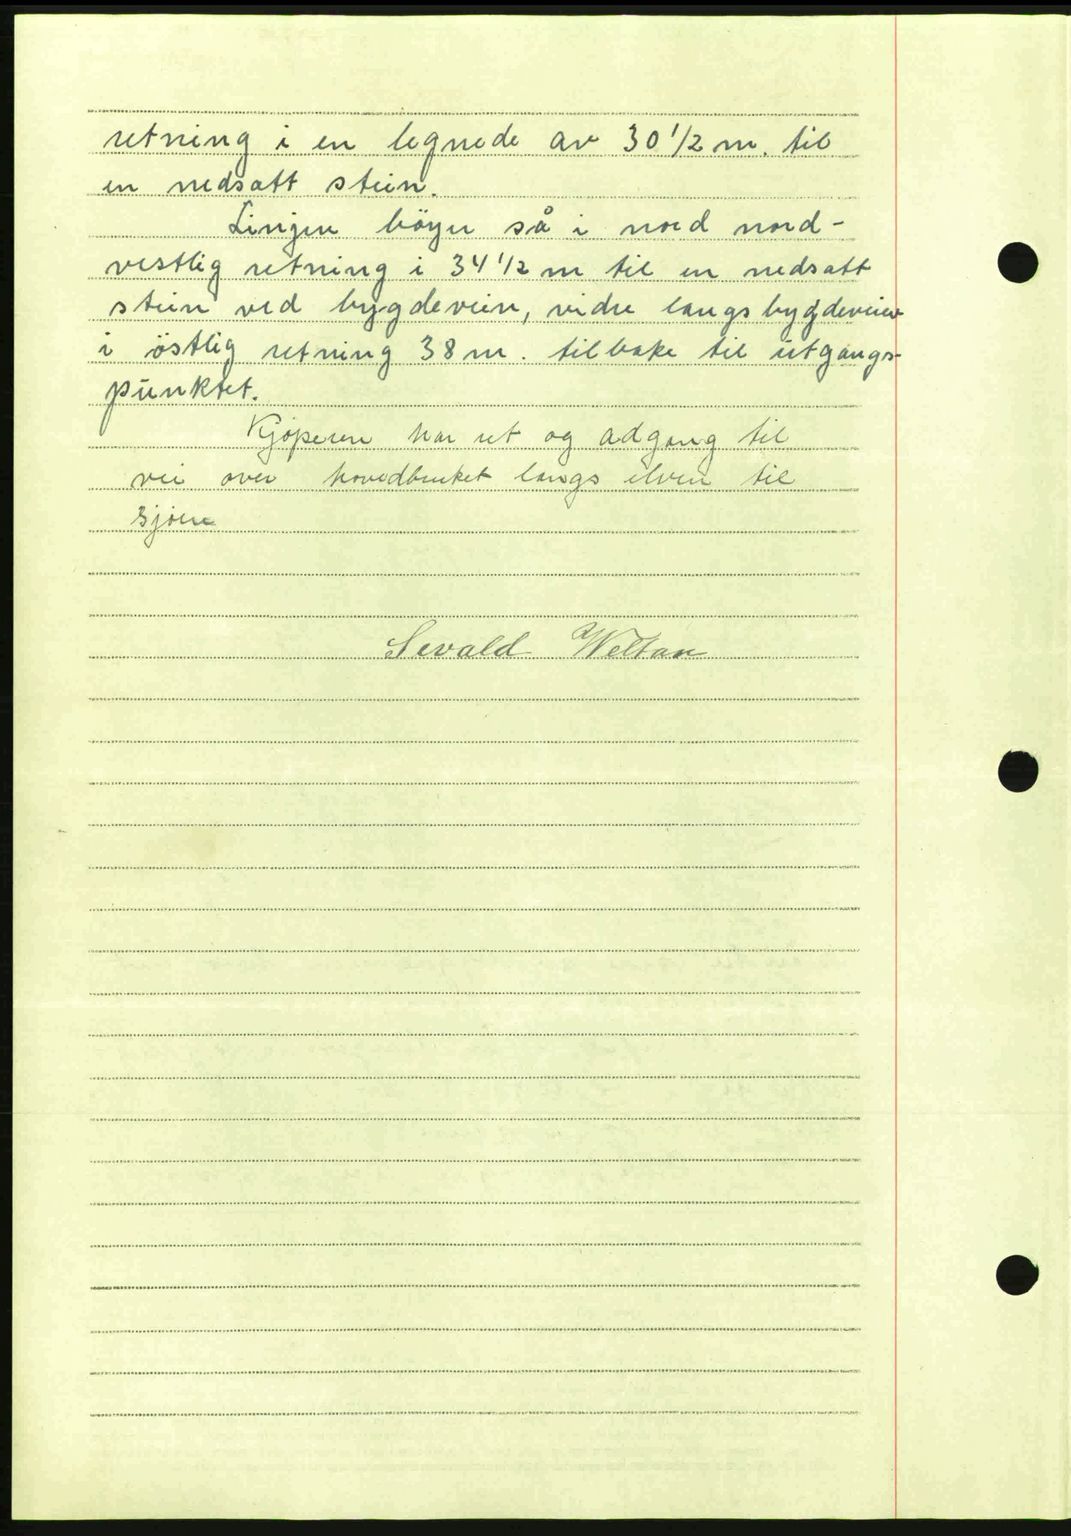 retning i en legnede av 30 1/2 m. til
en nedsatt stein.
Linjen böyer så i nord nord-
vestlig retning i 34 1/2 m til en nedsatt
stein ved bygdeveien, vidre langs bygdeveien
i östlig retning 38 m. tilbake til utgangs-
punktet.
Kjøperen har ret og adgang til
vei over hovedbruket langs elven til
sjøen
Sevald Weltan